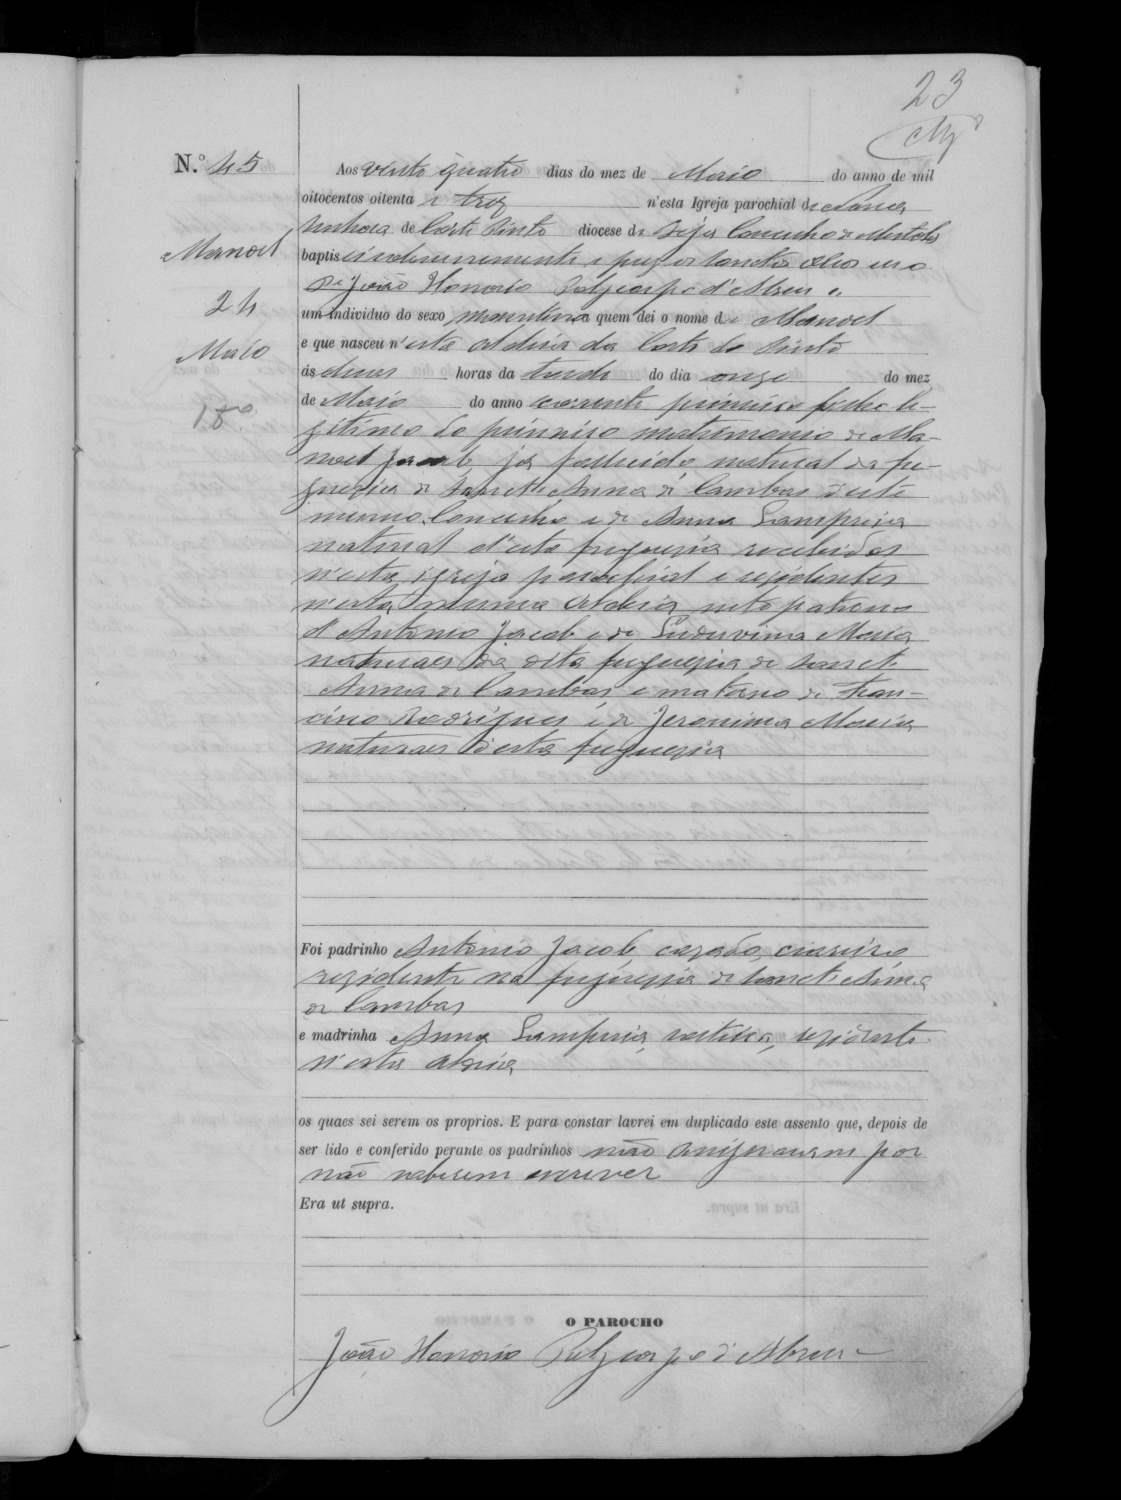 23
N.º 45
Aos vinte quatro dias do mez de Maio do anno de mil
oitocentos oitenta e trez n'esta Igreja parochial de Nossa
Senhora de Corte Pinto diocese de Beja Concelho de Mertola
Manoel
baptisei solemnemente e puz os Sanctos oleos eu o
Pe João Honorio Polycarpo d'Abreu
24
um individuo do sexo masculino a quem dei o nome de Manoel
Maio
e que nasceu n'esta Aldeia da Corte do Pinto
ás duas horas da tarde do dia onze do mez
de Maio do anno corrente primeiro filho le-
gitimo do primeiro matrimonio de Ma-
noel Jacob, já fallecido, natural da fre-
guezia de Sanct'Anna de Cambas d'este
mesmo Concelho e de Anna
natural d'esta freguezia recebidos
n'esta igreja parochial e rezidentes
n'esta mesma Aldeia neto paterno
d'Antonio Jacob e de Luduvina Maria
naturaes da dita freguezia de Sanct'
Anna de Cambas e materno de Fran-
cisco Rodrigues e de Jeronima Maria
naturaes d'esta freguezia
Foi padrinho Antonio Jacob, cazado,
rezidente na freguezia de Sanct'Anna
de Cambas
e madrinha Anna rezidente
n'esta aldeia
os quaes sei serem os proprios. E para constar lavrei em duplicado este assento que, depois de
ser lido e conferido perante os padrinhos não assignaram por
não saberem escrever
Era ut supra.
O PAROCHO
João Honorio Polycarpo d'Abreu